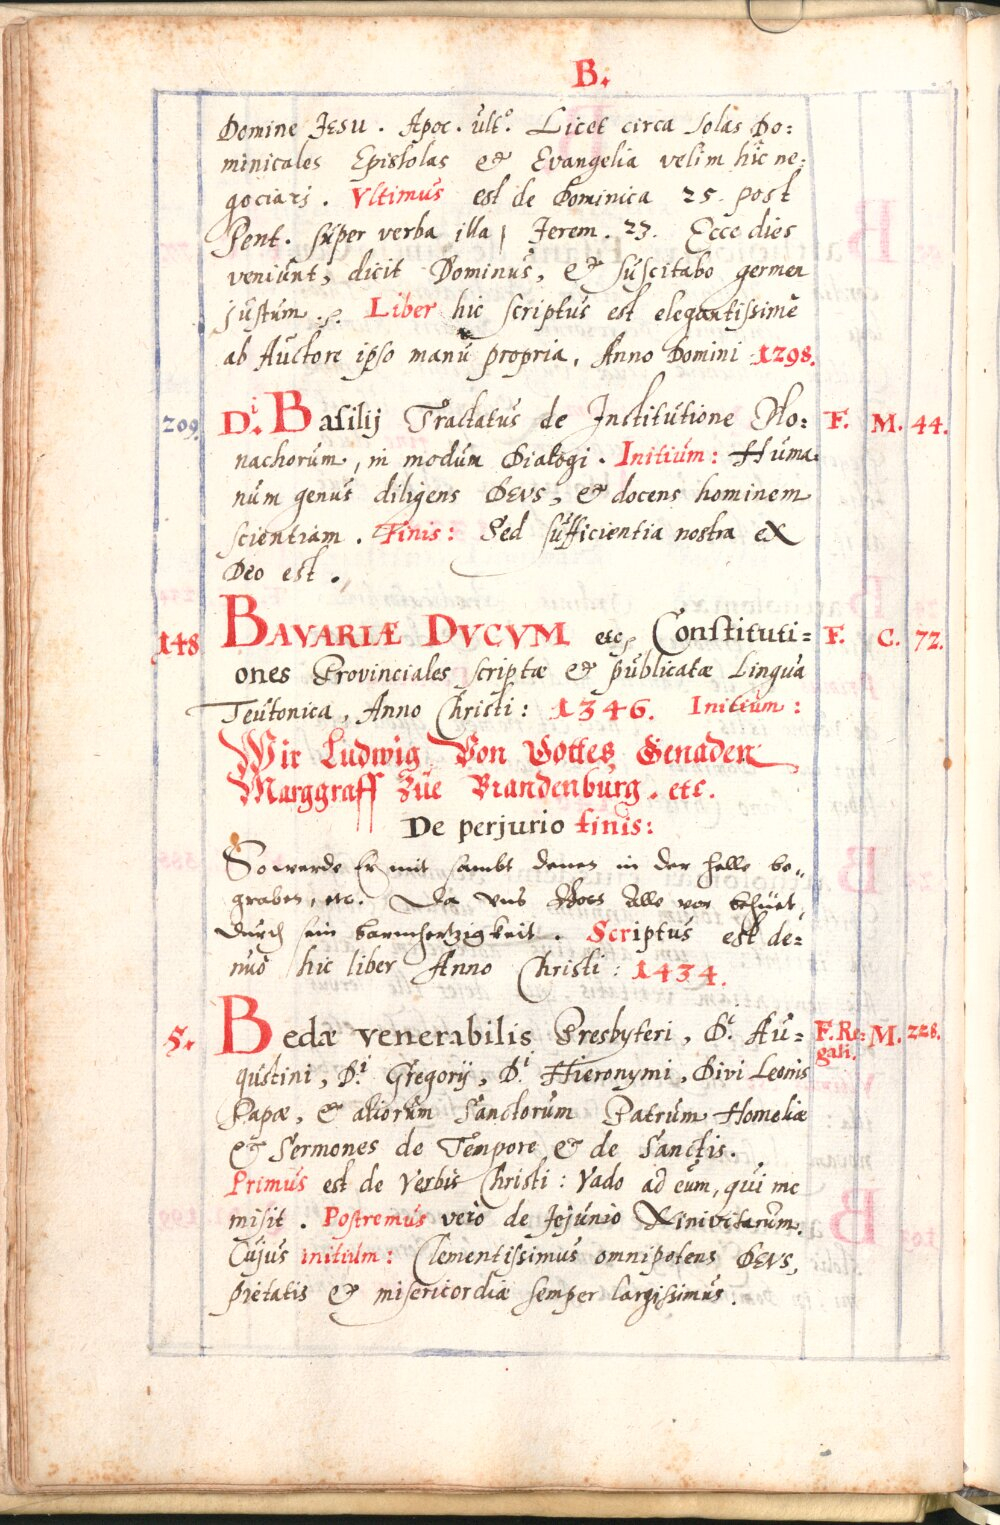 B.
Domine JESU. Apoc. ult.º Licet circa solas Do:
minicales Epistolas & Evangelia velim hic ne:
gociari. Vltimus est de Dominica 25. post
Pent. super verba illa, Jerem. 23. Ecce dies
veniunt, dicit Dominus, & suscitabo germen
justum. Liber hic scriptus est elegantissimè
ab Auctore ipso manu propria, Anno Domini 1298.
209. D.i Basilij Tractatus de Institutione Mo: F. M. 44.
nachorum, in modum Dialogi. Initium: Huma:
num genus diligens DEVS, & docens hominem
scientiam. Finis: Sed sufficientia nostra ex
Deo est.
148 BAVARIÆ DVCVM etc. Constituti= F. C. 72.
ones Provinciales scriptæ & publicatæ Lingua
Teutonica, Anno Christi: 1346. Initium:
Wir Ludwig Von Gottes Genaden
Marggraff Zue Brandenburg. etc.
De perjurio finis:
So werde Er mit sambt denen in der helle be„
graben, etc. Da vns Alle vor behüet
durch sein barmhertzigkeit. Scriptus est de:
nuò hic liber Anno Christi: 1434.
5. Bedæ venerabilis Presbyteri, D.i Au= F. Re: M. 228.
gustini, D.i Gregorij, D.i Hieronymi, Divi Leonis gali.
Papæ, & aliorum Sanctorum Patrum Homeliæ
& Sermones de Tempore & de Sanctis.
Primus est de Verbis Christi: Vado ad eum, qui me
misit. Postremus verò de Jejunio Ninivitarum.
Cujus initium: Clementissimus omnipotens DEVS,
pietatis & misericordiæ semper largissimus.